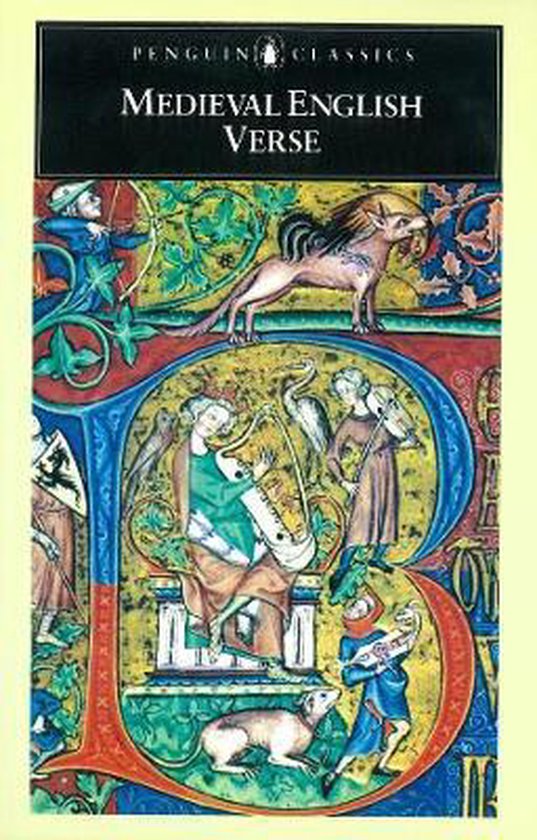 PENGUIN CLASSICS
MEDIEVAL ENGLISH
VERSE
B